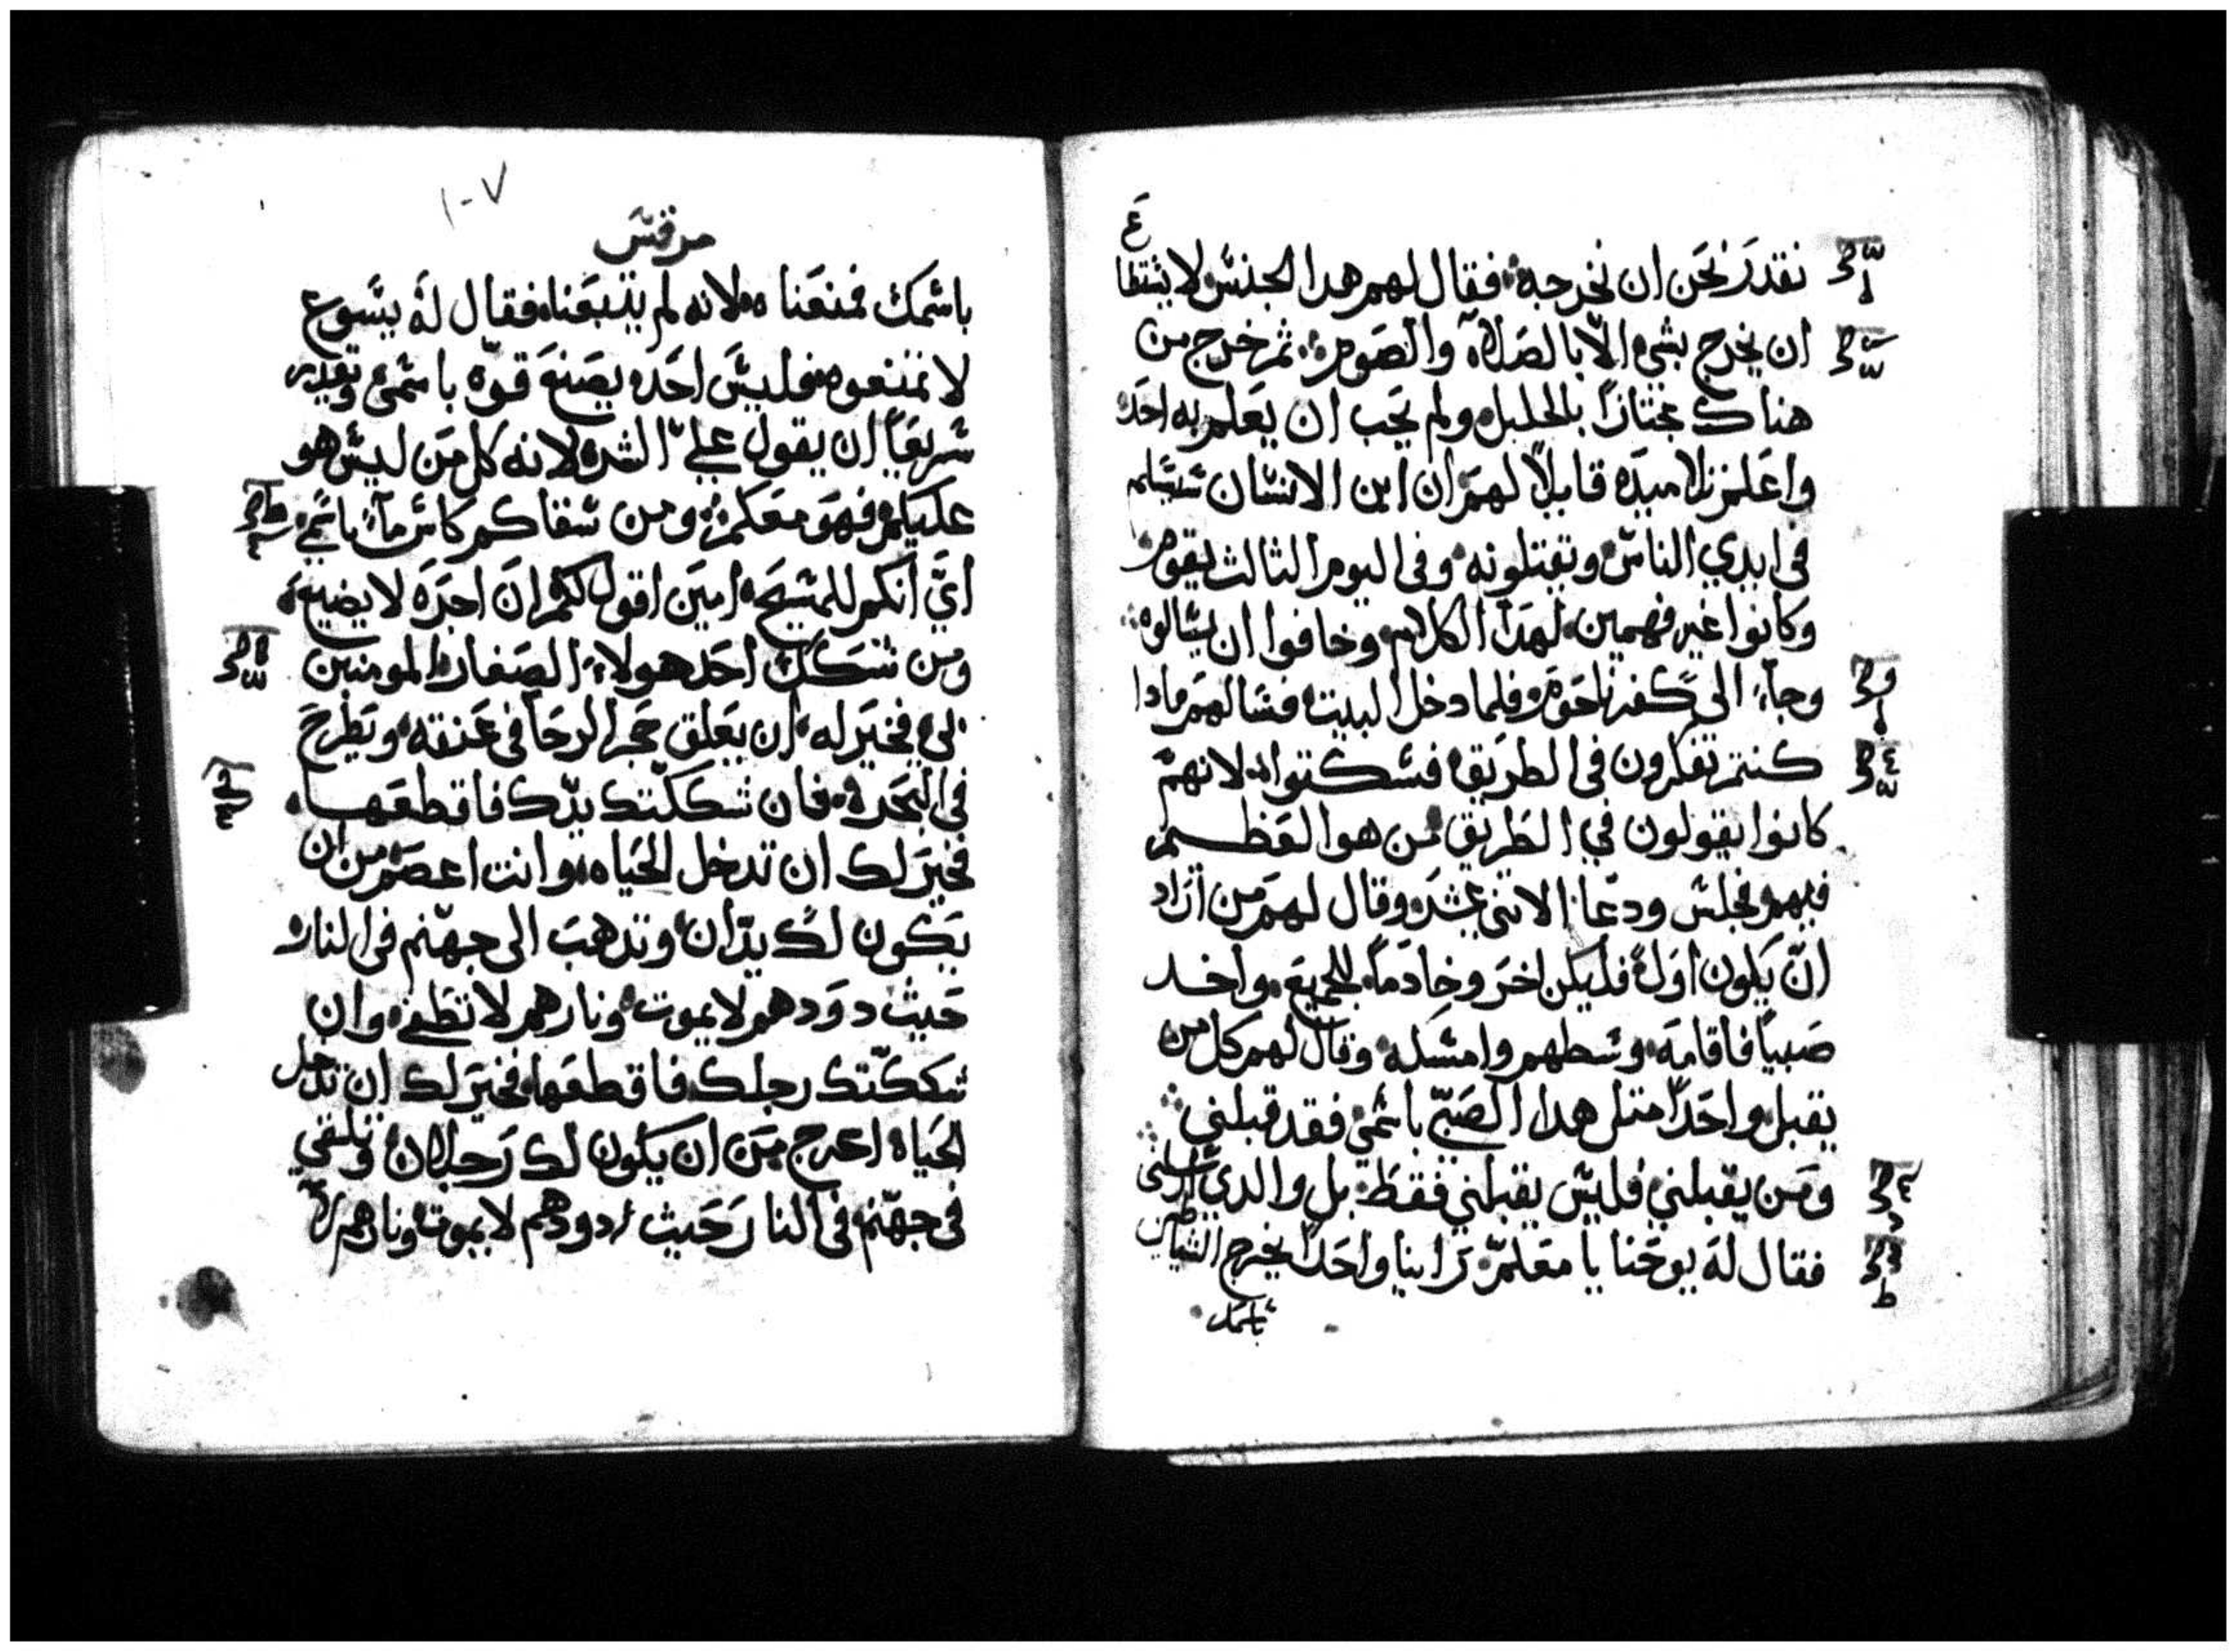 نقدر نحن ان نخرجه فقال لهم هدا الجنس لا يستطا
ع
ان يخرج بشي الا بالصلاه والصوم ثم خرج من
هناك مجتازا بالجليل ولم يحب ان يعلم به احد
واعلم تلاميده قايلا لهم ان ابن الانسان سيسلم
في ايدي الناس وتقتلونه وفي اليوم الثالث يقوم
وكانوا غير فهمين لهدا الكلام وخافوا ان يسالوه
وجآء الي كفرناحوم فلما دخل البيت فسالهم مادا
كنتم تفكرون في الطريق فسكتوا لانهم
كانوا يقولون في الطريق من هو العظم
فيهم فجلس ودعا الاثني عشر وقال لهم من اراد
ان يكون اول فليكن اخر وخادما للجميع واخد
صبيا فاقامه وسطهم وامسكه وقال لهم كل من
يقبل واحدا متل هدا الصبي باسمي فقد قبلني
ومن يقبلني فليس يقبلني فقط بل والدي ارسلني
فقال له يوحنا يا معلم راينا واحدا يخرج الشياطين
باسمك
١٠٧
مرقس
باسمك فمنعناه لانه لم يتبعنا فقال له يسوع
لا تمنعوه فليس احد يصنع قوه باسمي ويقدر
سريعا ان يقول علي الشر لانه كل من ليس هو
عليكم فهو معكم ومن سقاكم كاس مآء باسمي
اي انكم للمسيح امين اقول لكم ان اجره لا يضيع
ومن شكك احد هولاء الصغار المومنين
بي فخير له ان يعلق حجر الرحا في عنقه ويطرح
في البحر فان شككتك يدك فاقطعها
فخير لك ان تدخل الحياه وانت اعصم من ان
يكون لك يدان وتدهب الى جهنم في النار
حيث دودهم لا يموت ونارهم لا تطفي وان
شككتك رجلك فاقطعها فخير لك ان تدخل
الحياه اعرج من ان يكون لك رجلان وتلقي
في جهنم في النار حيث دودهم لا يموت ونارهم لا